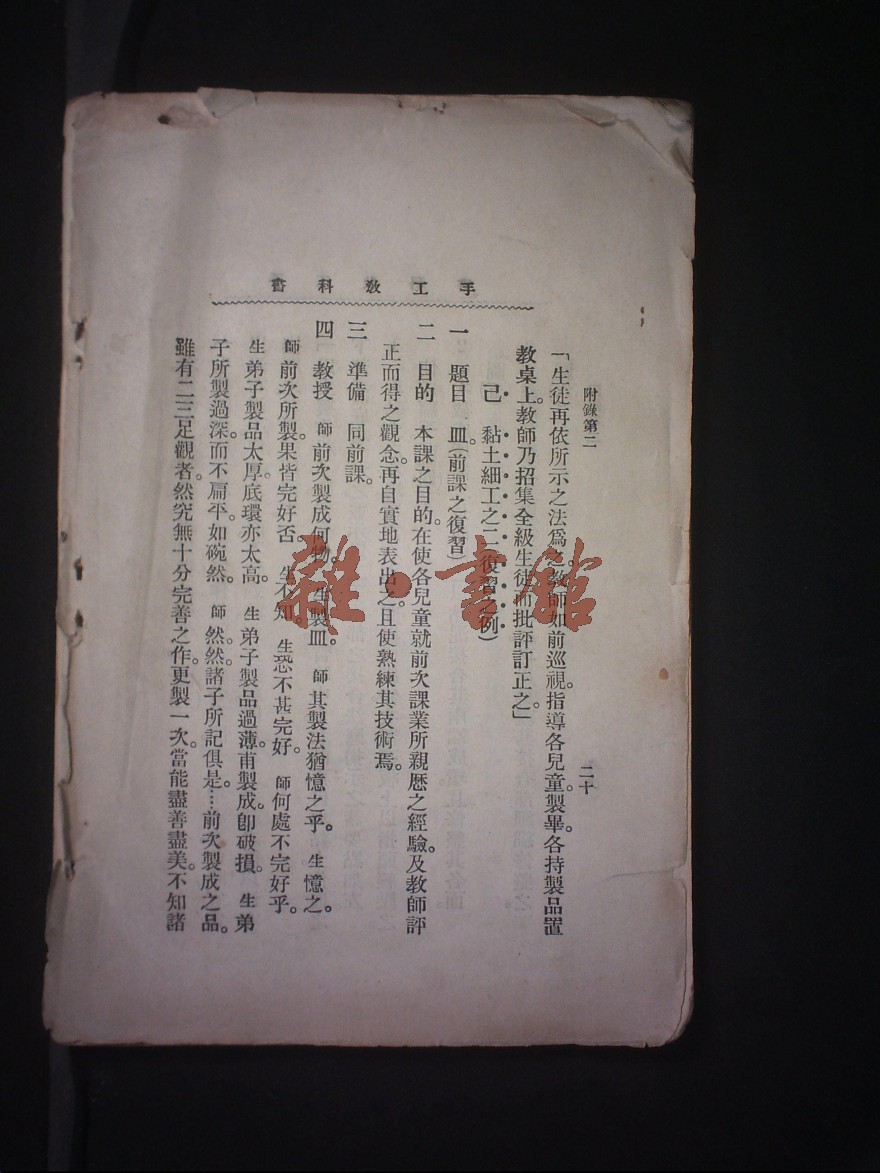 手工教科書
附錄第二 二十
「生徒再依所示之法爲之。教師如前巡視。指導各兒童。製畢。各持製品置
教桌上。教師乃招集全級生徒而批評訂正之。」
己 黏土細工之二(復習之例)
一 題目 皿。(前課之復習)
二 目的 本課之目的。在使各兒童就前次課業所親歷之經驗。及教師評
正而得之觀念。再自實地表出之。且使熟練其技術焉。
三 準備 同前課。
四 教授 師前次製成何物。 生製皿。 師其製法猶憶之乎。 生憶之。
師前次所製。果皆完好否。 生不知。 生恐不甚完好。 師何處不完好乎。
生弟子製品太厚。底環亦太高。 生弟子製品過薄。甫製成。卽破損。 生弟
子所製過深。而不扁平。如碗然。 師然。然。諸子所記俱是。…前次製成之品。
雖有二三足觀者。然究無十分完善之作。更製一次。當能盡善盡美。不知諸
雜·書館